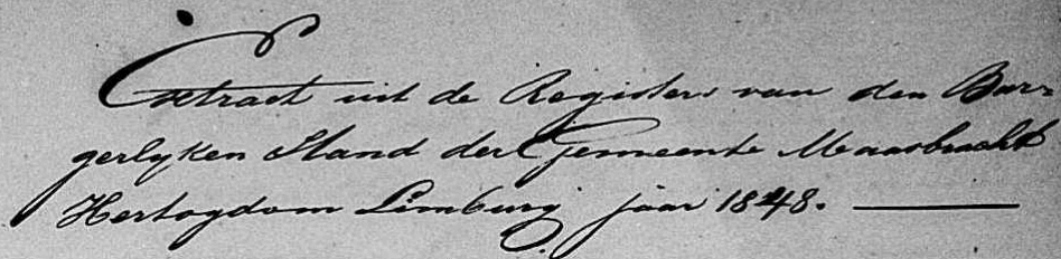 Extract uit de Registers van den Bur-
gerlyken Stand der Gemeente Maasbracht
Hertogdom Limburg jaar 1848. ———